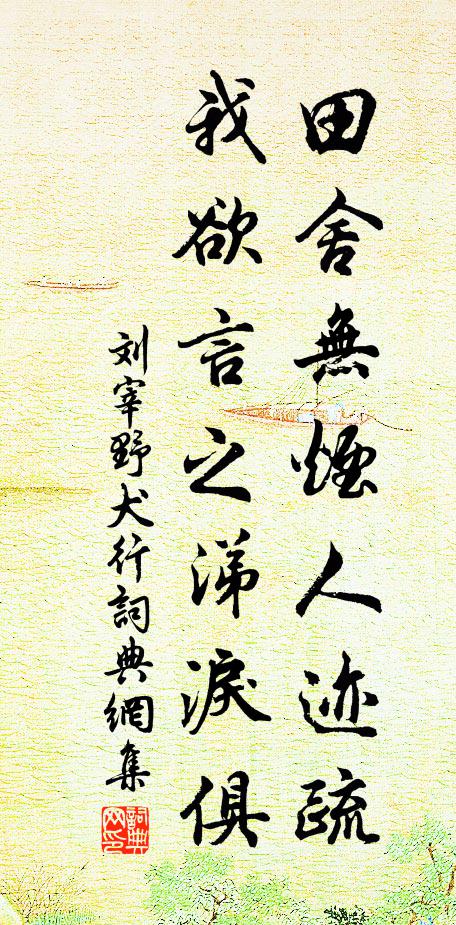 田舍無煙人迹疏
我欲言之涕淚俱
刘宰野犬行詞典網集
詞典网印